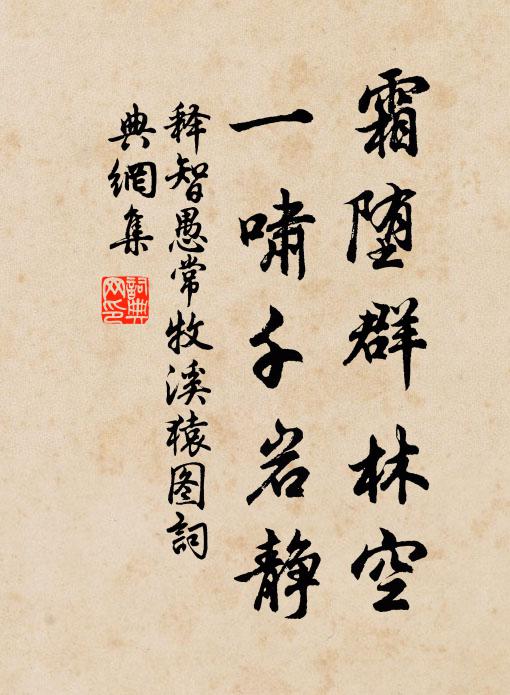 霜堕群林空
一啸千岩静
释智愚常牧溪猿图詞
典網集
詞典网印